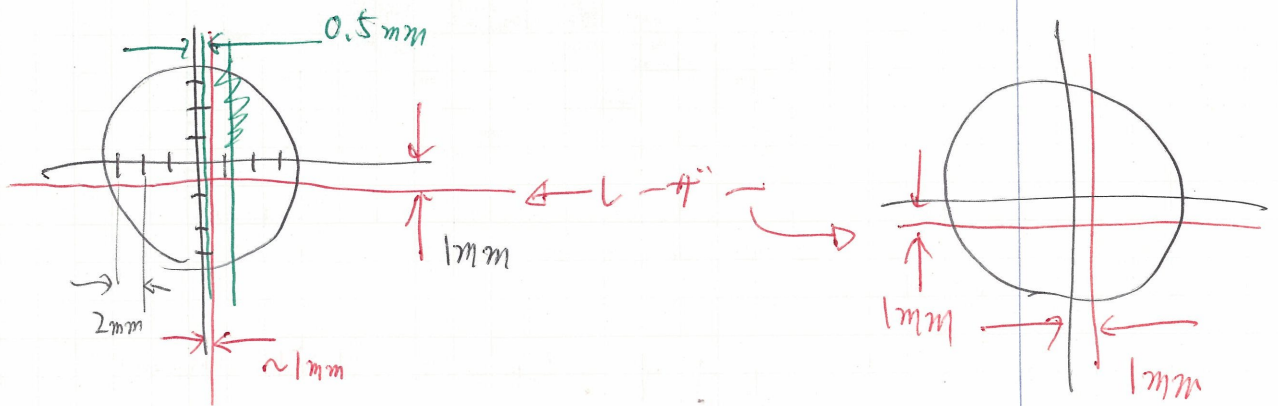 0.5mm
レーザー
1mm
2mm
~1mm
1mm
1mm